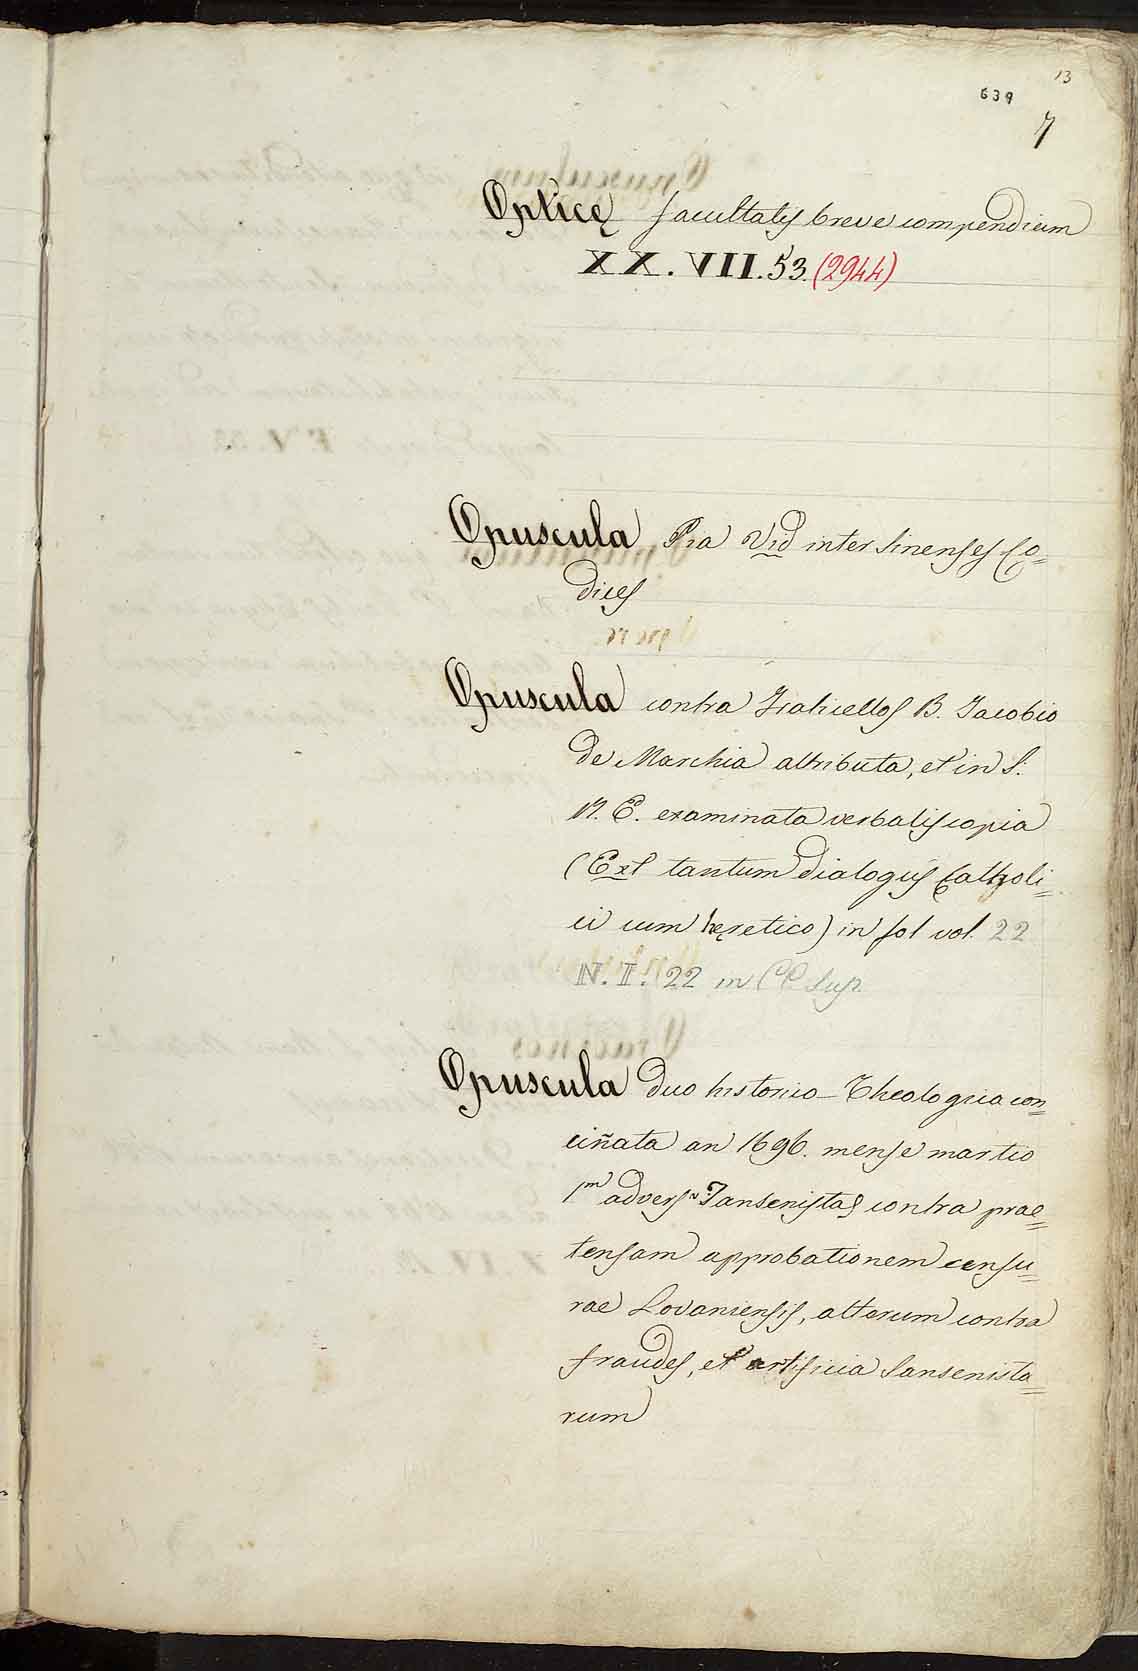 13
639
7
Opticę facultatis breve compendium
XX. VII. 53. (2944)
Opuscula Pia Vid inter Sinenses Co=
dices
Opuscula contra Fraticellos B. Jacobio
de Marchia attributa, et in S.
R. E. examinata verbalis copia
(Ext tantum dialogus Catholi=
ci cum hęretico) in fol vol. 22
N. I. 22 in CC Sup.
Opuscula duo historico-Theologica con=
ciñata an 1696. mense martio
1m advers Jansenistas contra prae=
tensam approbationem censu=
rae Lovaniensis, alterum contra
fraudes, et artificia Jansenista=
rum